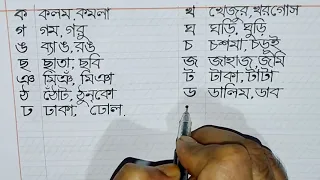 ক কলম, কমলা খ খেজুর, খরগোস
গ গম, গরু ঘ ঘড়ি, ঘুড়ি
ঙ ব্যাঙ, রঙ চ চশমা, চড়ুই
ছ ছাতা, ছবি জ জাহাজ, জমি
ঞ মিঞ, মিঞা ট টাকা, টাটা
ঠ ঠোঁট, ঠুনকো ড ডালিম, ডাব
ঢ ঢাকা, ঢোল